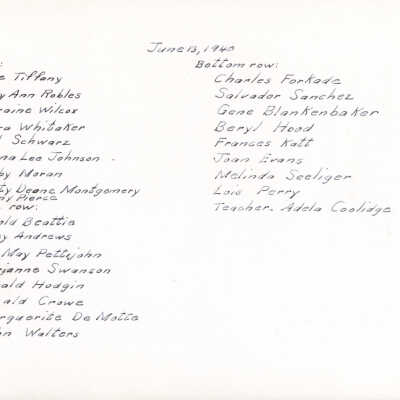 June 13, 1940
:
e Tiffany
y Ann Robles
raine Wilcox
ra Whitaker
l Schwarz
na Lee Johnson
by Moran
ty Deane Montgomery
ny Pierce
row:
ald Beattie
y Andrews
May Pettijohn
rjanne Swanson
ald Hodgin
ald Crowe
rguerite De Motte
hn Walters
Bottom row:
Charles Forkade
Salvador Sanchez
Gene Blankenbaker
Beryl Hood
Frances Katt
Joan Evans
Melinda Seeliger
Lois Perry
Teacher. Adela Coolidge